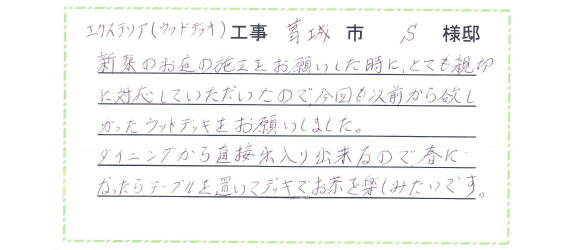 エクステリア(ウッドデッキ)工事 葛城 市 S 様邸
新築のお庭の施工をお願いした時に、とても親切
に対応していただいたので、今回も以前から欲し
かったウッドデッキをお願いしました。
ダイニングから直接出入り出来るので春に
なったらテーブルを置いてデッキでお茶を楽しみたいです。